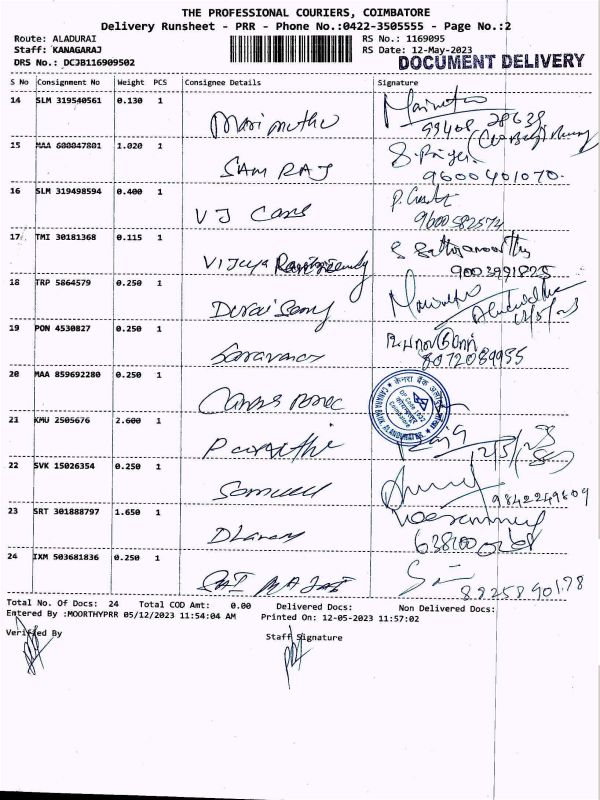 THE PROFESSIONAL COURIERS, COIMBATORE
Delivery Runsheet - PRR - Phone No.:0422-3505555 - Page No.:2
Route: ALADURAI RS No.: 1169095
Staff: KANAGARAJ RS Date: 12-May-2023
DRS No.: DCJB116909502 DOCUMENT DELIVERY
S No Consignment No Weight PCS Consignee Details Signature
14 SLM 319540561 0.130 1 Marimuthu
99408 28639
15 MAA 600047801 1.020 1 SAM RAJ
9600401070
16 SLM 319498594 0.400 1 VJ Cars
9600582572
17 TMI 30181368 0.115 1 Vijaya
9003991825
18 TRP 5864579 0.250 1 Durai Samy
12/5/23
19 PON 4530827 0.250 1 Saravanan
8072089955
20 MAA 859692280 0.250 1 Canara Banc
केनरा बैंक
CANARA BANK
21 KMU 2505676 2.600 1
12/5/23
22 SVK 15026354 0.250 1 Samuell
9842249609
23 SRT 301888797 1.650 1
24 IXM 503681836 0.250 1
Total No. Of Docs: 24 Total COD Amt: 0.00 Delivered Docs: Non Delivered Docs:
Entered By :MOORTHYPRR 05/12/2023 11:54:04 AM Printed On: 12-05-2023 11:57:02
Verified By Staff Signature